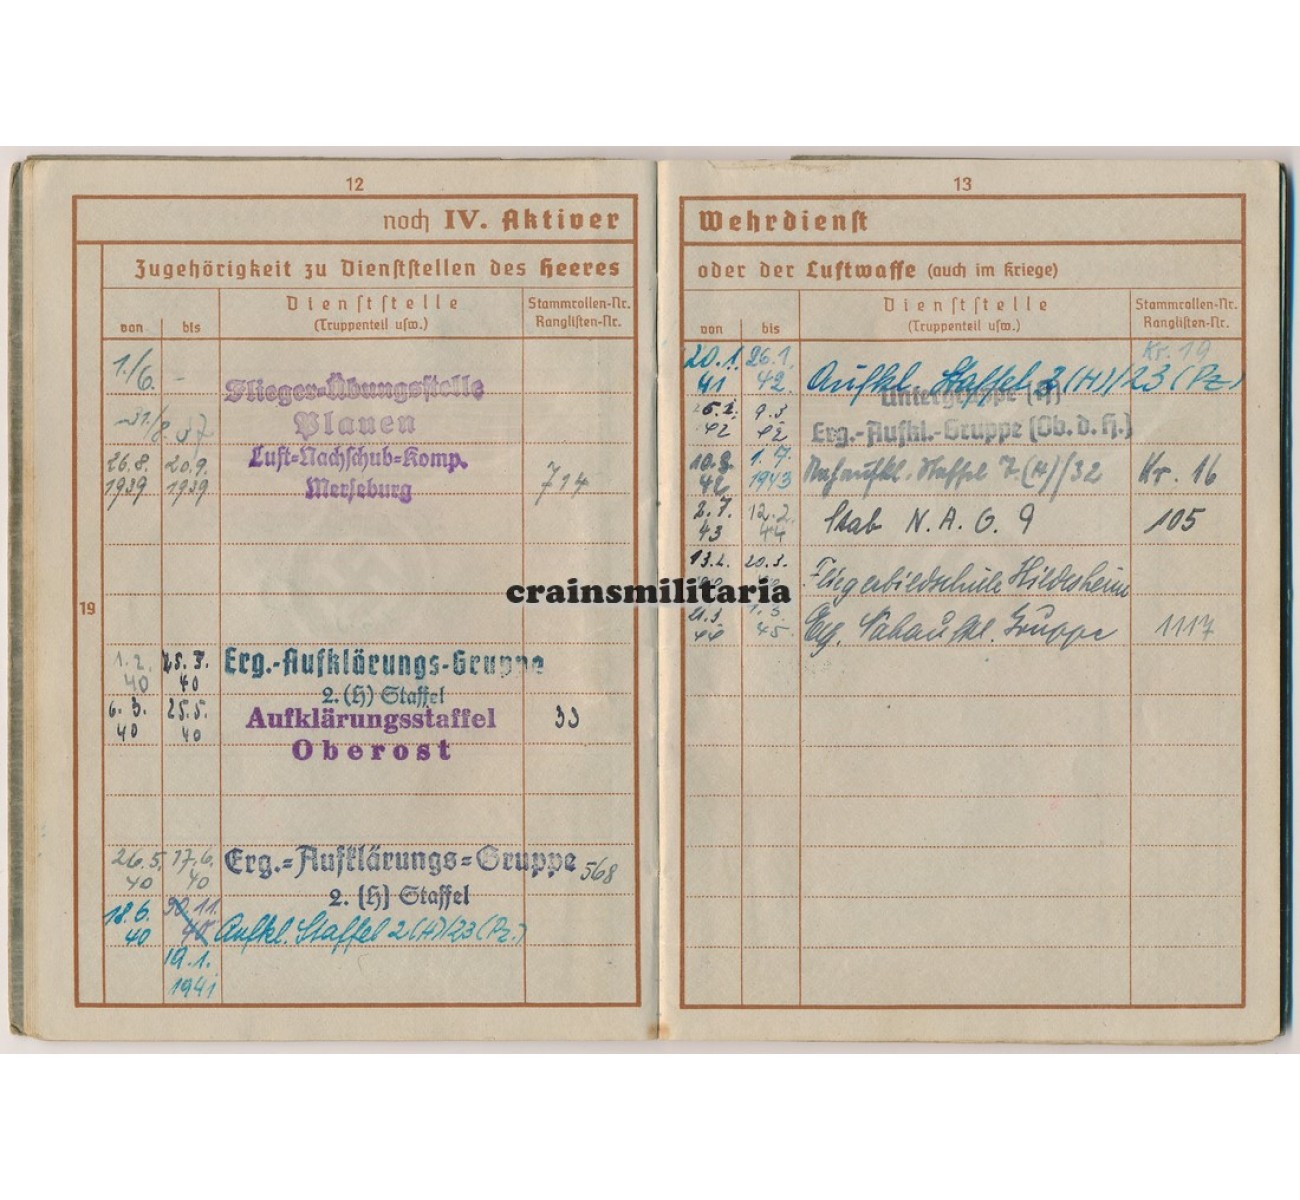 12
noch IV. Aktiver
Zugehörigkeit zu Dienststellen des Heeres
von
bis
Dienststelle
(Truppenteil usw.)
Stammrollen-Nr.
Ranglisten-Nr.
19
1./6. -
-31/8.37
Flieger-Übungsstelle
Plauen
26.8. 1939
20.9. 1939
Luft-Nachschub-Komp.
Merseburg
714
1.2. 40
25.3. 40
Erg.-Aufklärungs-Gruppe
2. (H) Staffel
6.3. 40
25.5. 40
Aufklärungsstaffel
Oberost
33
26.5. 40
17.6. 40
Erg.=Aufklärungs=Gruppe
2. (H) Staffel
568
18.6. 40
30.11. 40
Aufkl. Staffel 2(H)/23 (Pz.)
19.1. 1941
crainsmilitaria
13
Wehrdienst
oder der Luftwaffe (auch im Kriege)
von
bis
Dienststelle
(Truppenteil usw.)
Stammrollen-Nr.
Ranglisten-Nr.
20.1. 41
26.1. 42.
Aufkl. Staffel 2(H)/23 (Pz)
Kr. 19
42
9.3 42
Untergruppe (H)
Erg.-Aufkl.-Gruppe (Ob.d.H.)
10.3. 42
1.7. 1943
Nahaufkl. Staffel 7.(H)/32
Kr. 16
2.7. 43
12.2. 44
Stab N.A.G. 9
105
13.2.
20.3.
Fliegerbildschule Hildesheim
21.3. 44
1.3. 45.
Erg. Nahaufkl. Gruppe
1117